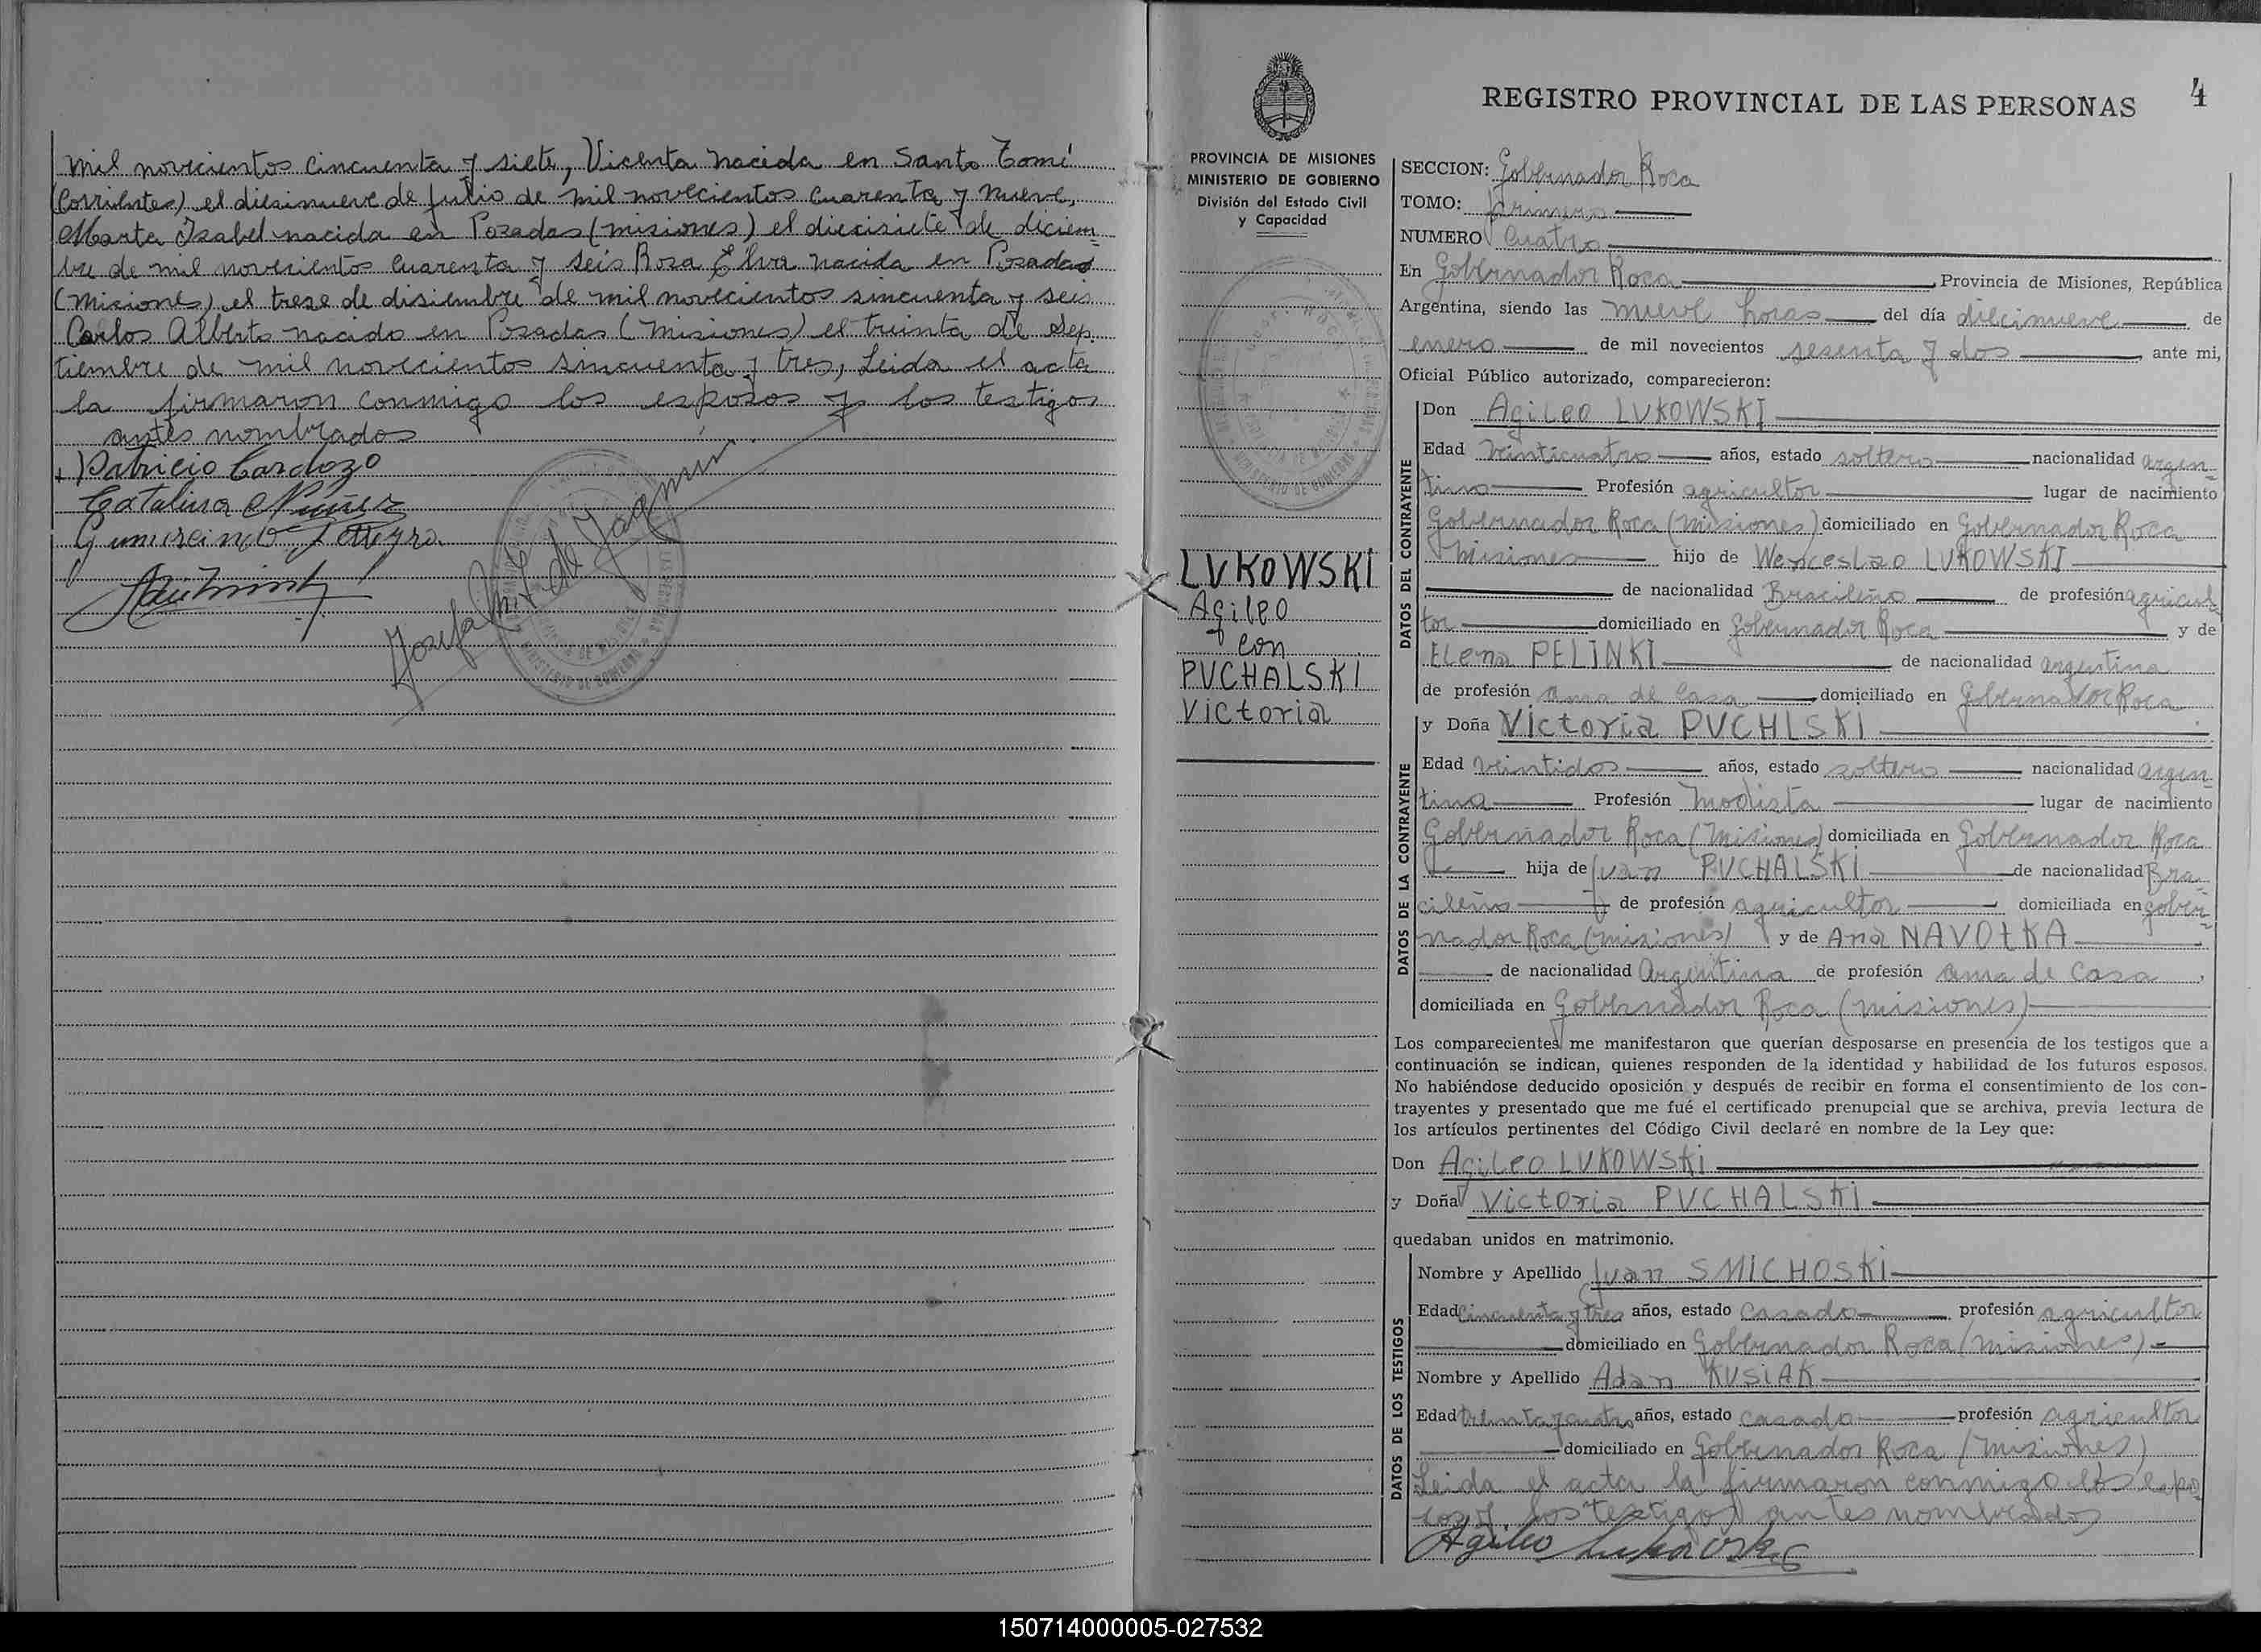 mil novecientos cincuenta y siete, Vicenta nacida en Santo Tomé
(Corrientes) el diesinueve de julio de mil novecientos cuarenta y nueve,
Marta Isabel nacida en Posadas (misiones) el diecisiete de diciem
bre de mil novecientos cuarenta y seis Rosa Elva nacida en Posadas
(Misiones) el trese de disiembre de mil novecientos sincuenta y seis
Carlos Alberto nacido en Posadas (Misiones) el treinta de sep
tiembre de mil novecientos sincuenta y tres, Leida el acta
la firmaron conmigo los esposos y los testigos
antes nombrados
Patricio Cardozo
Catalina Nuñez
4
REGISTRO PROVINCIAL DE LAS PERSONAS
PROVINCIA DE MISIONES
MINISTERIO DE GOBIERNO
División del Estado Civil
y Capacidad
LUKOWSKI
Agileo
con
PUCHALSKI
Victoria
SECCION: Gobernador Roca
TOMO: primero
NUMERO Cuatro
En Gobernador Roca, Provincia de Misiones, República
Argentina, siendo las nueve horas del día diecinueve de
enero de mil novecientos sesenta y dos ante mi,
Oficial Público autorizado, comparecieron:
DATOS DEL CONTRAYENTE
Don Agileo LUKOWSKI
Edad Veinticuatro años, estado soltero nacionalidad argen-
tino Profesión agricultor lugar de nacimiento
Gobernador Roca (Misiones) domiciliado en Gobernador Roca
Misiones hijo de Wenceslao LUKOWSKI
de nacionalidad Brasileño de profesión agricul
tor domiciliado en Gobernador Roca y de
Elena PELINKI de nacionalidad argentina
de profesión ama de casa domiciliado en Gobernador Roca
DATOS DE LA CONTRAYENTE
y Doña Victoria PUCHLSKI
Edad Veintidos años, estado soltera nacionalidad argen-
tina Profesión Modista lugar de nacimiento
Gobernador Roca (Misiones) domiciliada en Gobernador Roca
hija de Juan PUCHALSKI de nacionalidad Bra-
cileño de profesión agricultor domiciliada en gober-
nador Roca (misiones) y de Ana NAVOLKA
de nacionalidad Argentina de profesión ama de casa,
domiciliada en Gobernador Roca (misiones)
Los comparecientes me manifestaron que querían desposarse en presencia de los testigos que a
continuación se indican, quienes responden de la identidad y habilidad de los futuros esposos.
No habiéndose deducido oposición y después de recibir en forma el consentimiento de los con-
trayentes y presentado que me fué el certificado prenupcial que se archiva, previa lectura de
los artículos pertinentes del Código Civil declaré en nombre de la Ley que:
Don Agileo LUKOWSKI
y Doña Victoria PUCHALSKI
quedaban unidos en matrimonio.
DATOS DE LOS TESTIGOS
Nombre y Apellido Juan SMICHOSKI
Edad Cincuenta y tres años, estado casado profesión agricultor
domiciliado en Gobernador Roca (misiones)
Nombre y Apellido Adan KUSIAK
Edad treinta y cuatro años, estado casado profesión agricultor
domiciliado en Gobernador Roca (misiones)
Leida el acta la firmaron conmigo los espo
sos y los testigos antes nombrados
Agileo Lukowski
150714000005-027532